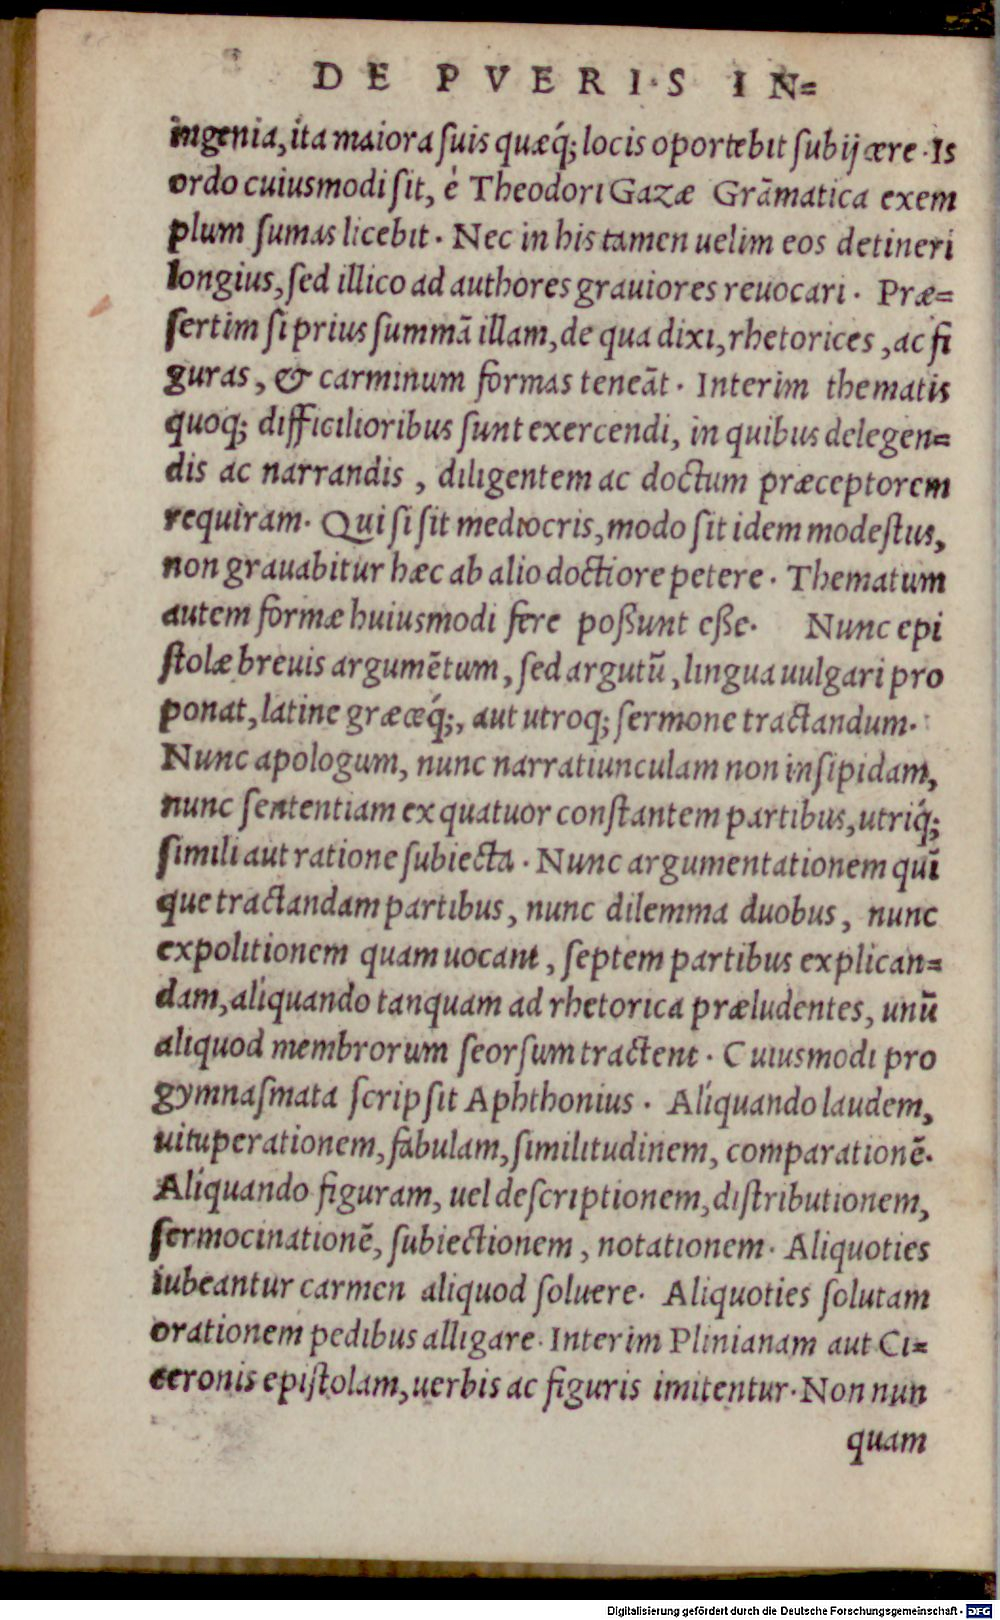 DE PVERIS IN=
ingenia, ita maiora ſuis quæq́; locis oportebit ſubijcere. Is
ordo cuiusmodi ſit, è Theodori Gazæ Grāmatica exem
plum ſumas licebit. Nec in his tamen uelim eos detineri
longius, ſed illico ad authores grauiores reuocari. Præ=
ſertim ſi prius ſummā illam, de qua dixi, rhetorices, ac fi
guras, & carminum formas teneāt. Interim thematis
quoq; difficilioribus ſunt exercendi, in quibus delegen=
dis ac narrandis, diligentem ac doctum præceptorem
requiram. Qui ſi ſit mediocris, modo ſit idem modeſtus,
non grauabitur hæc ab alio doctiore petere. Thematum
autem formæ huiusmodi fere poßunt eße. Nunc epi
ſtolæ breuis argumētum, ſed argutū, lingua uulgari pro
ponat, latine græceq́;, aut utroq; ſermone tractandum.
Nunc apologum, nunc narratiunculam non inſipidam,
nunc ſententiam ex quatuor conſtantem partibus, utriq́;
ſimili aut ratione ſubiecta. Nunc argumentationem quī
que tractandam partibus, nunc dilemma duobus, nunc
expolitionem quam uocant, ſeptem partibus explican=
dam, aliquando tanquam ad rhetorica præludentes, unū
aliquod membrorum ſeorſum tractent. Cuiusmodi pro
gymnaſmata ſcripſit Aphthonius. Aliquando laudem,
uituperationem, fabulam, ſimilitudinem, comparationē.
Aliquando figuram, uel deſcriptionem, diſtributionem,
ſermocinationē, ſubiectionem, notationem. Aliquoties
iubeantur carmen aliquod ſoluere. Aliquoties ſolutam
orationem pedibus alligare. Interim Plinianam aut Ci=
ceronis epiſtolam, uerbis ac figuris imitentur. Non nun
quam
Digitalisierung gefördert durch die Deutsche Forschungsgemeinschaft - DFG